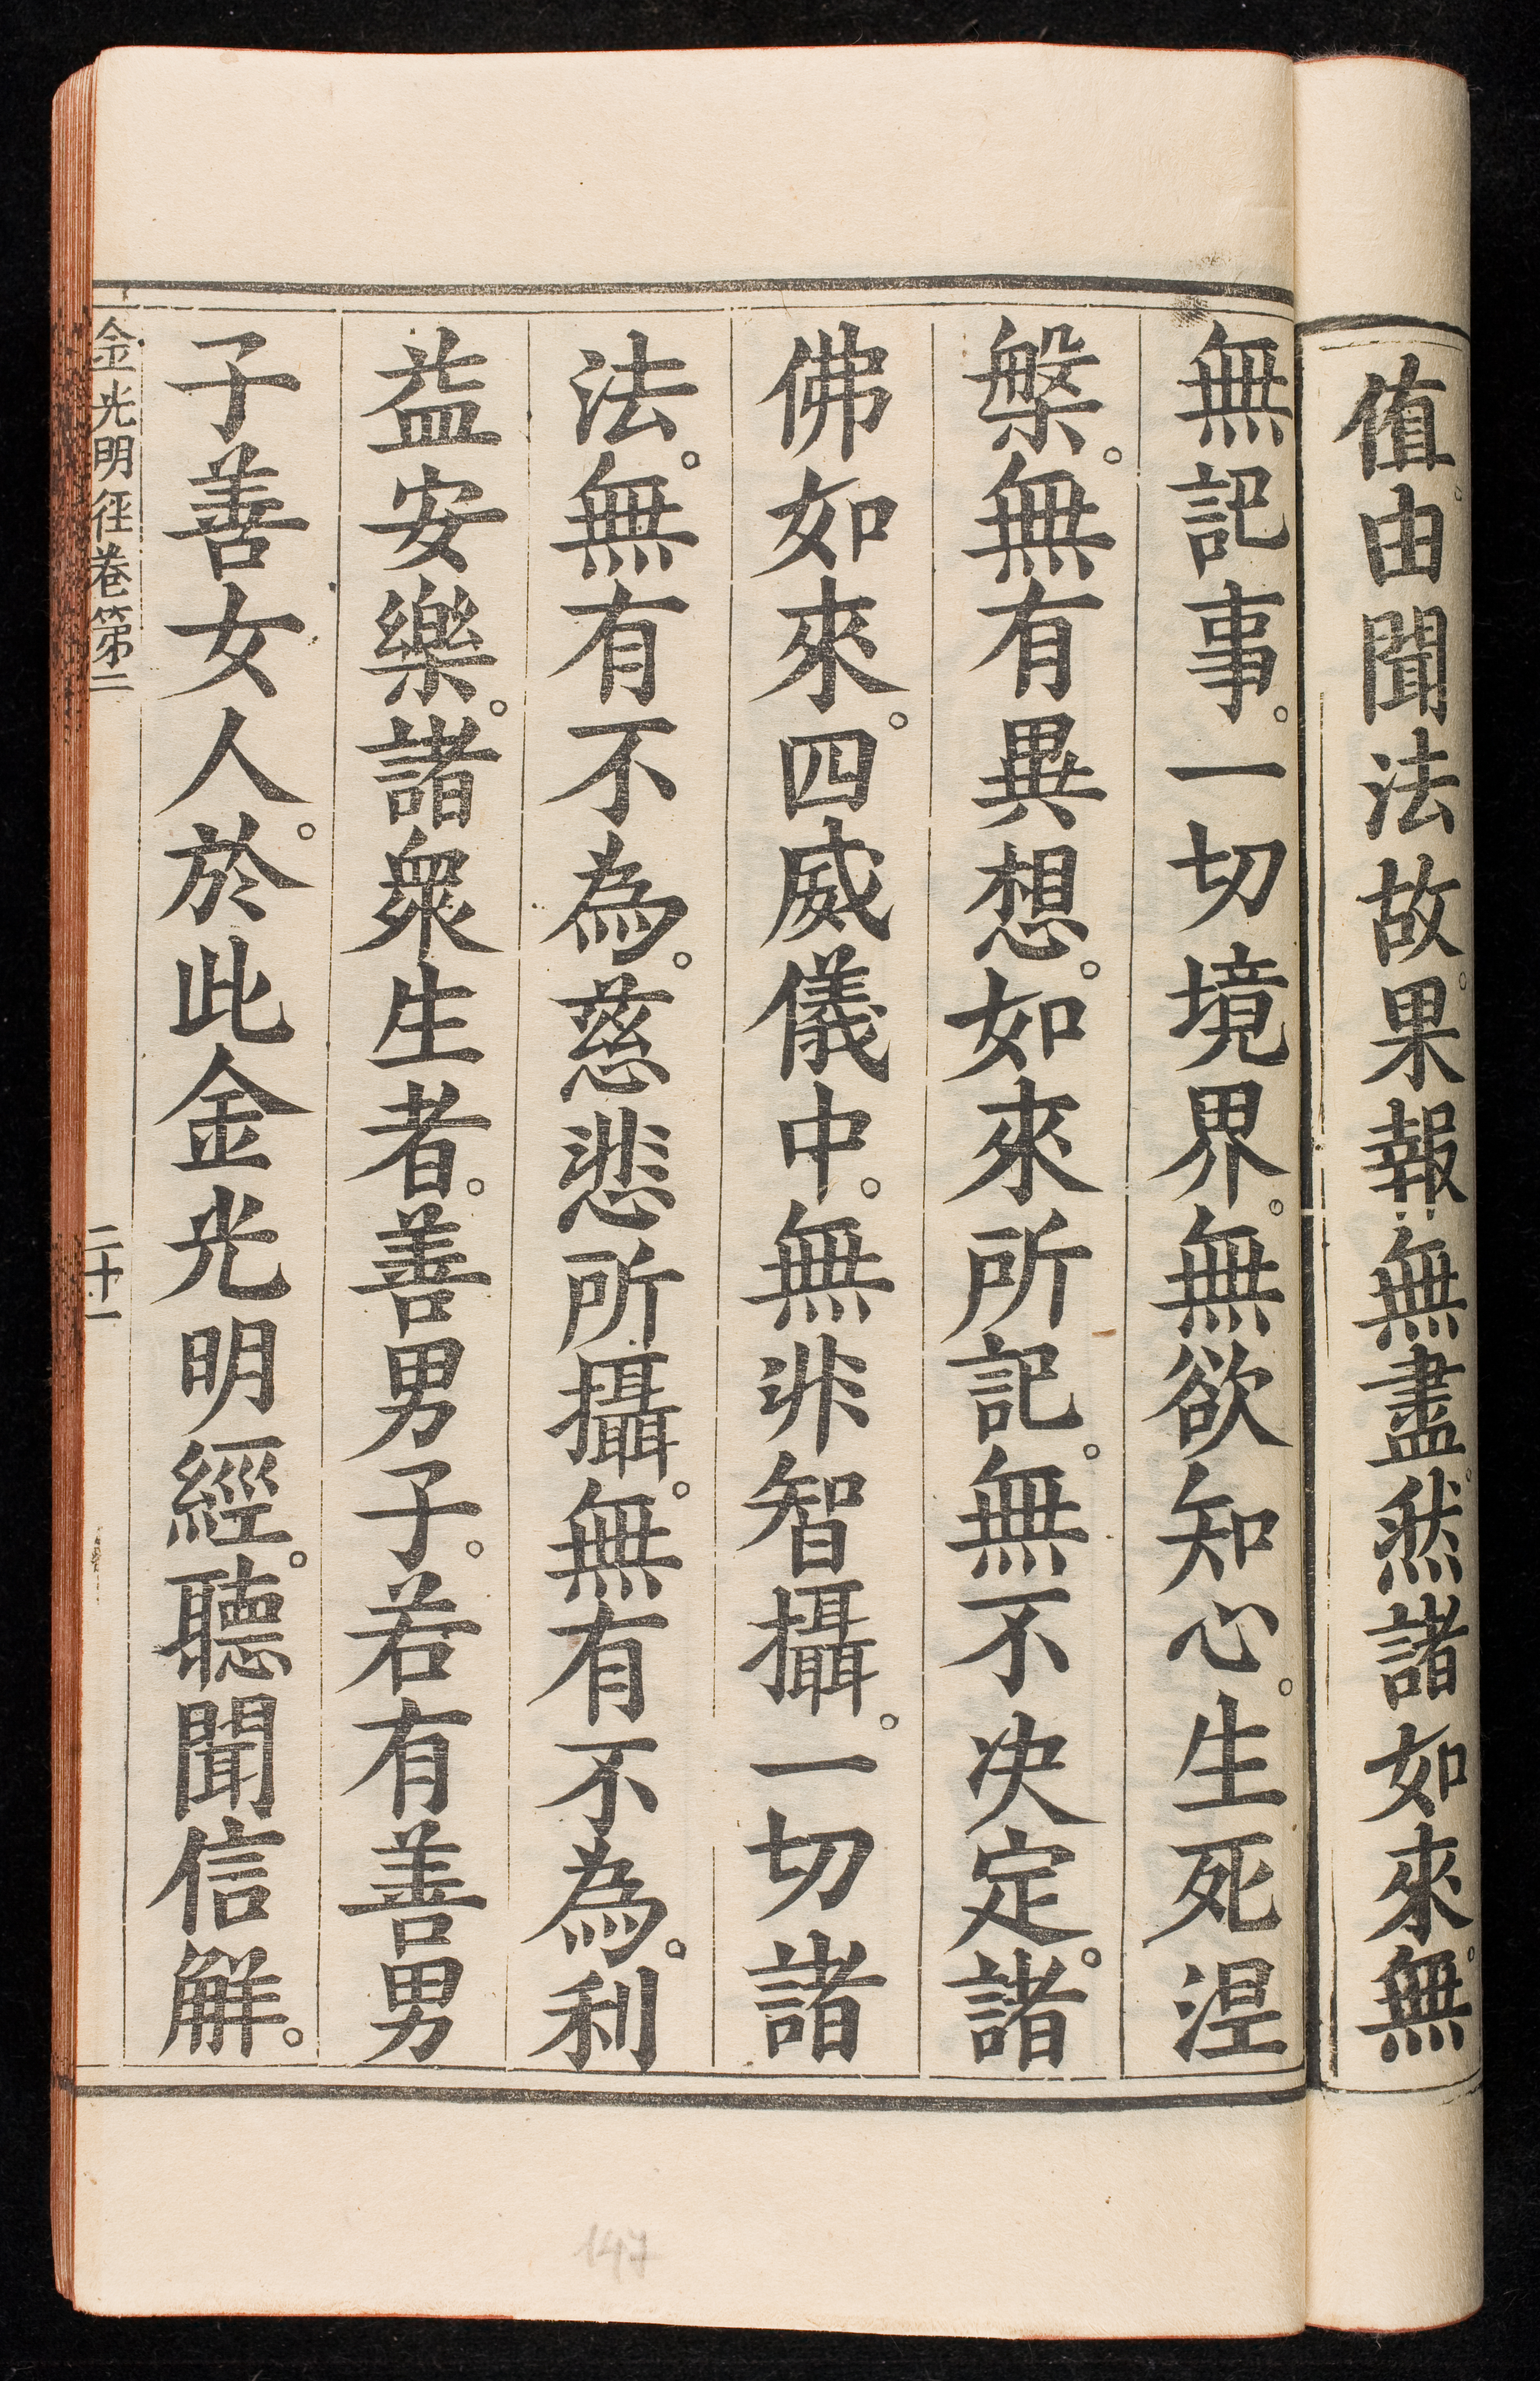 值。由聞法故。果報無盡。然諸如來。無
無記事。一切境界。無欲知心。生死涅
槃。無有異想。如來所記。無不決定。諸
佛如來。四威儀中。無非智攝。一切諸
法。無有不為。慈悲所攝。無有不為。利
益安樂。諸眾生者。善男子。若有善男
子善女人。於此金光明經。聽聞信解。
金光明径卷第二
二十一
147